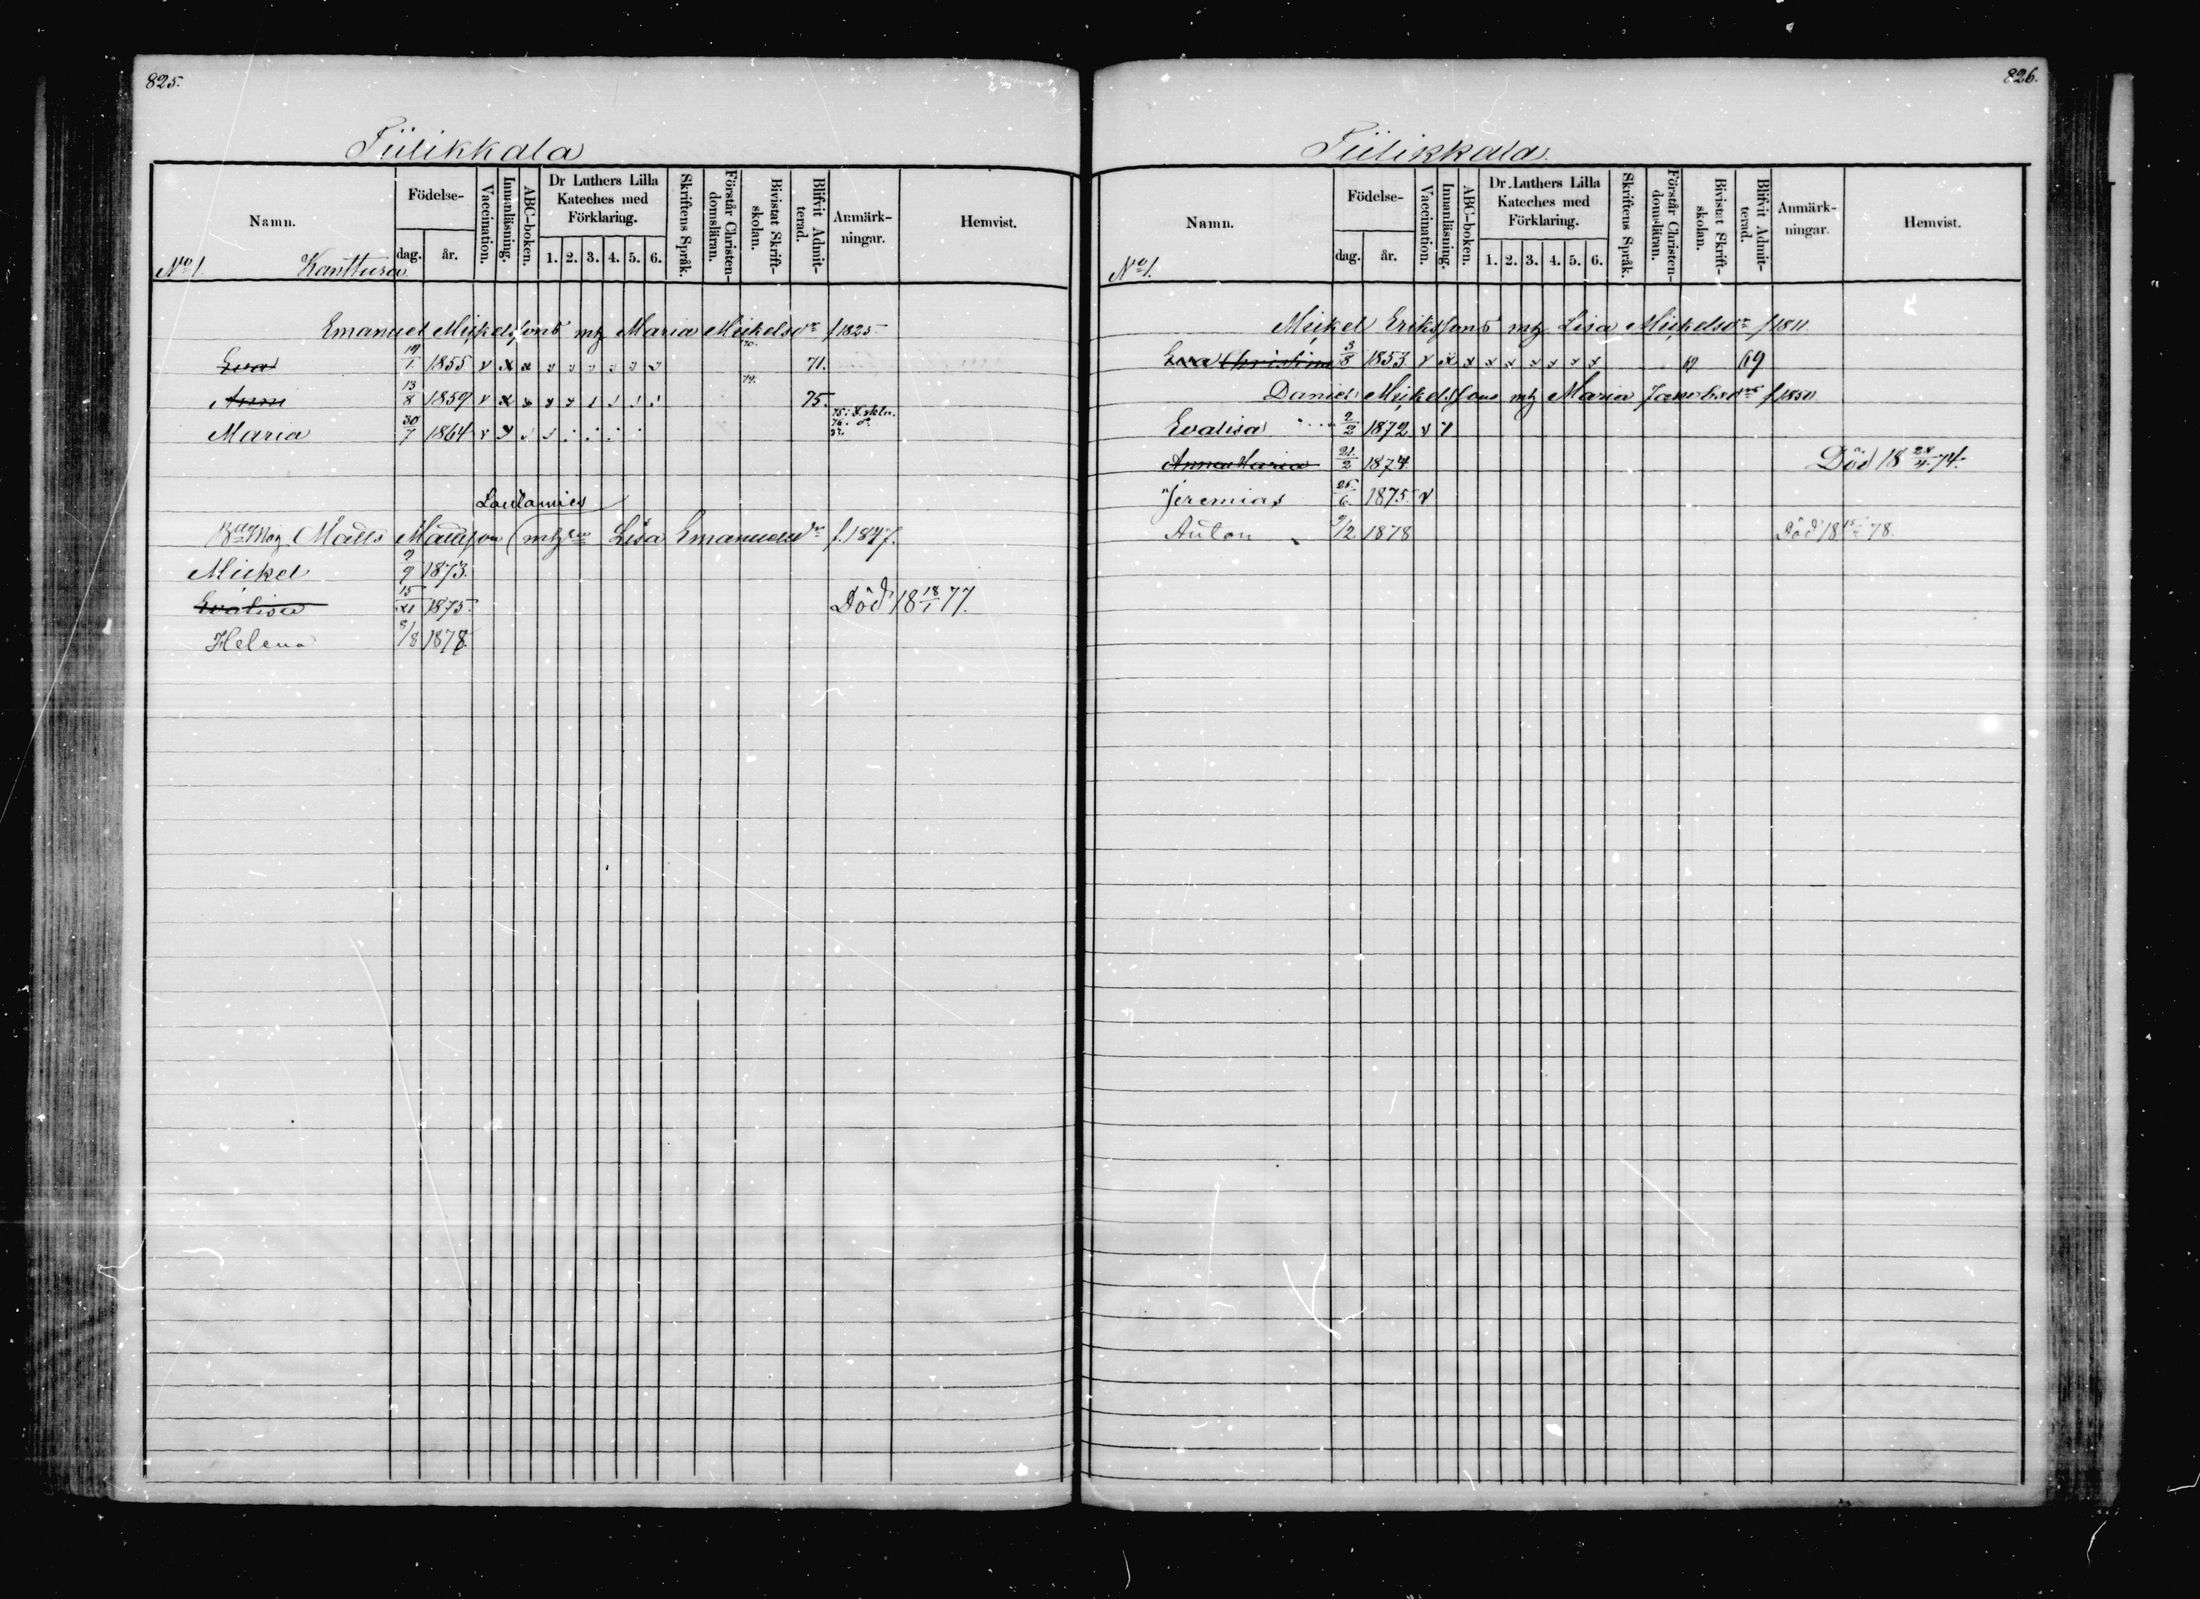 825.
Tiilikkala
Namn. Födelse- dag. år. Vaccination. Innanläsning. ABC-boken. Dr Luthers Lilla Kateches med Förklaring. 1. 2. 3. 4. 5. 6. Skriftens Språk. Förstår Christen-domsläran. Bivistat Skrift-skolan. Blifvit Admit-terad. Anmärk-ningar. Hemvist.
No 1. Kanttusa
Emanuel Mickelssons mhg Maria Mickelsdr f 1825
Eva 1855 v x x 70. 71.
Anna 13/8 1859 v x x 74. 75.
Maria 30/7 1864 v
Loulamies
Matts Mattsson Lisa Emanuelsdr f. 1847.
Mickel 2/9 1873.
Evalisa 15/XI 1875. Död 18 18/1 77.
Helena 8/8 1878.
826.
Tiilikkala.
Namn. Födelse- dag. år. Vaccination. Innanläsning. ABC-boken. Dr Luthers Lilla Kateches med Förklaring. 1. 2. 3. 4. 5. 6. Skriftens Språk. Förstår Christen-domsläran. Bivistat Skrift-skolan. Blifvit Admit-terad. Anmärk-ningar. Hemvist.
No 1.
Mickel Erikssons mhg Lisa Mickelsdr f 1811
Eva Christina 3/8 1853 v x x x x x x x x 69
Daniel Mickelssons mhg Maria Jacobsdr f 1850
Evalisa 2/2 1872 v
Anna Maria 21/2 1874 Död 18 28/4 74.
Jeremias 25/6 1875 v
Anton 9/2 1878 Död 18 78.